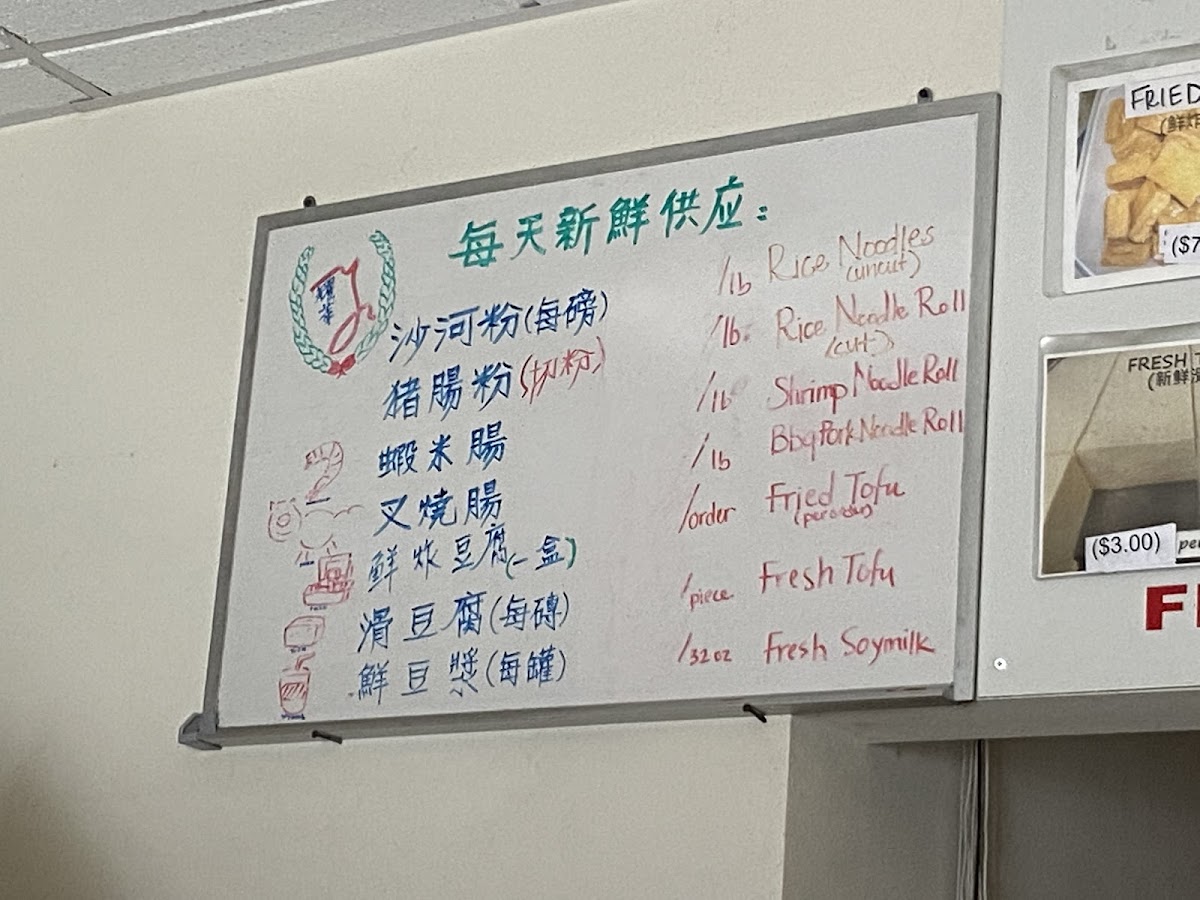 每天新鮮供应:
沙河粉(每磅) /lb Rice Noodles
(uncut)
猪腸粉(切粉) /lb Rice Noodle Roll
(cut)
蝦米腸 /lb Shrimp Noodle Roll
叉燒腸 /lb Bbq Pork Noodle Roll
鮮炸豆腐(一盒) /order Fried Tofu
(per order)
滑豆腐(每磚) /piece Fresh Tofu
鮮豆漿(每罐) /32oz Fresh Soymilk
FRIED
(鮮炸
($7
FRESH T
(新鮮滑
($3.00) pe